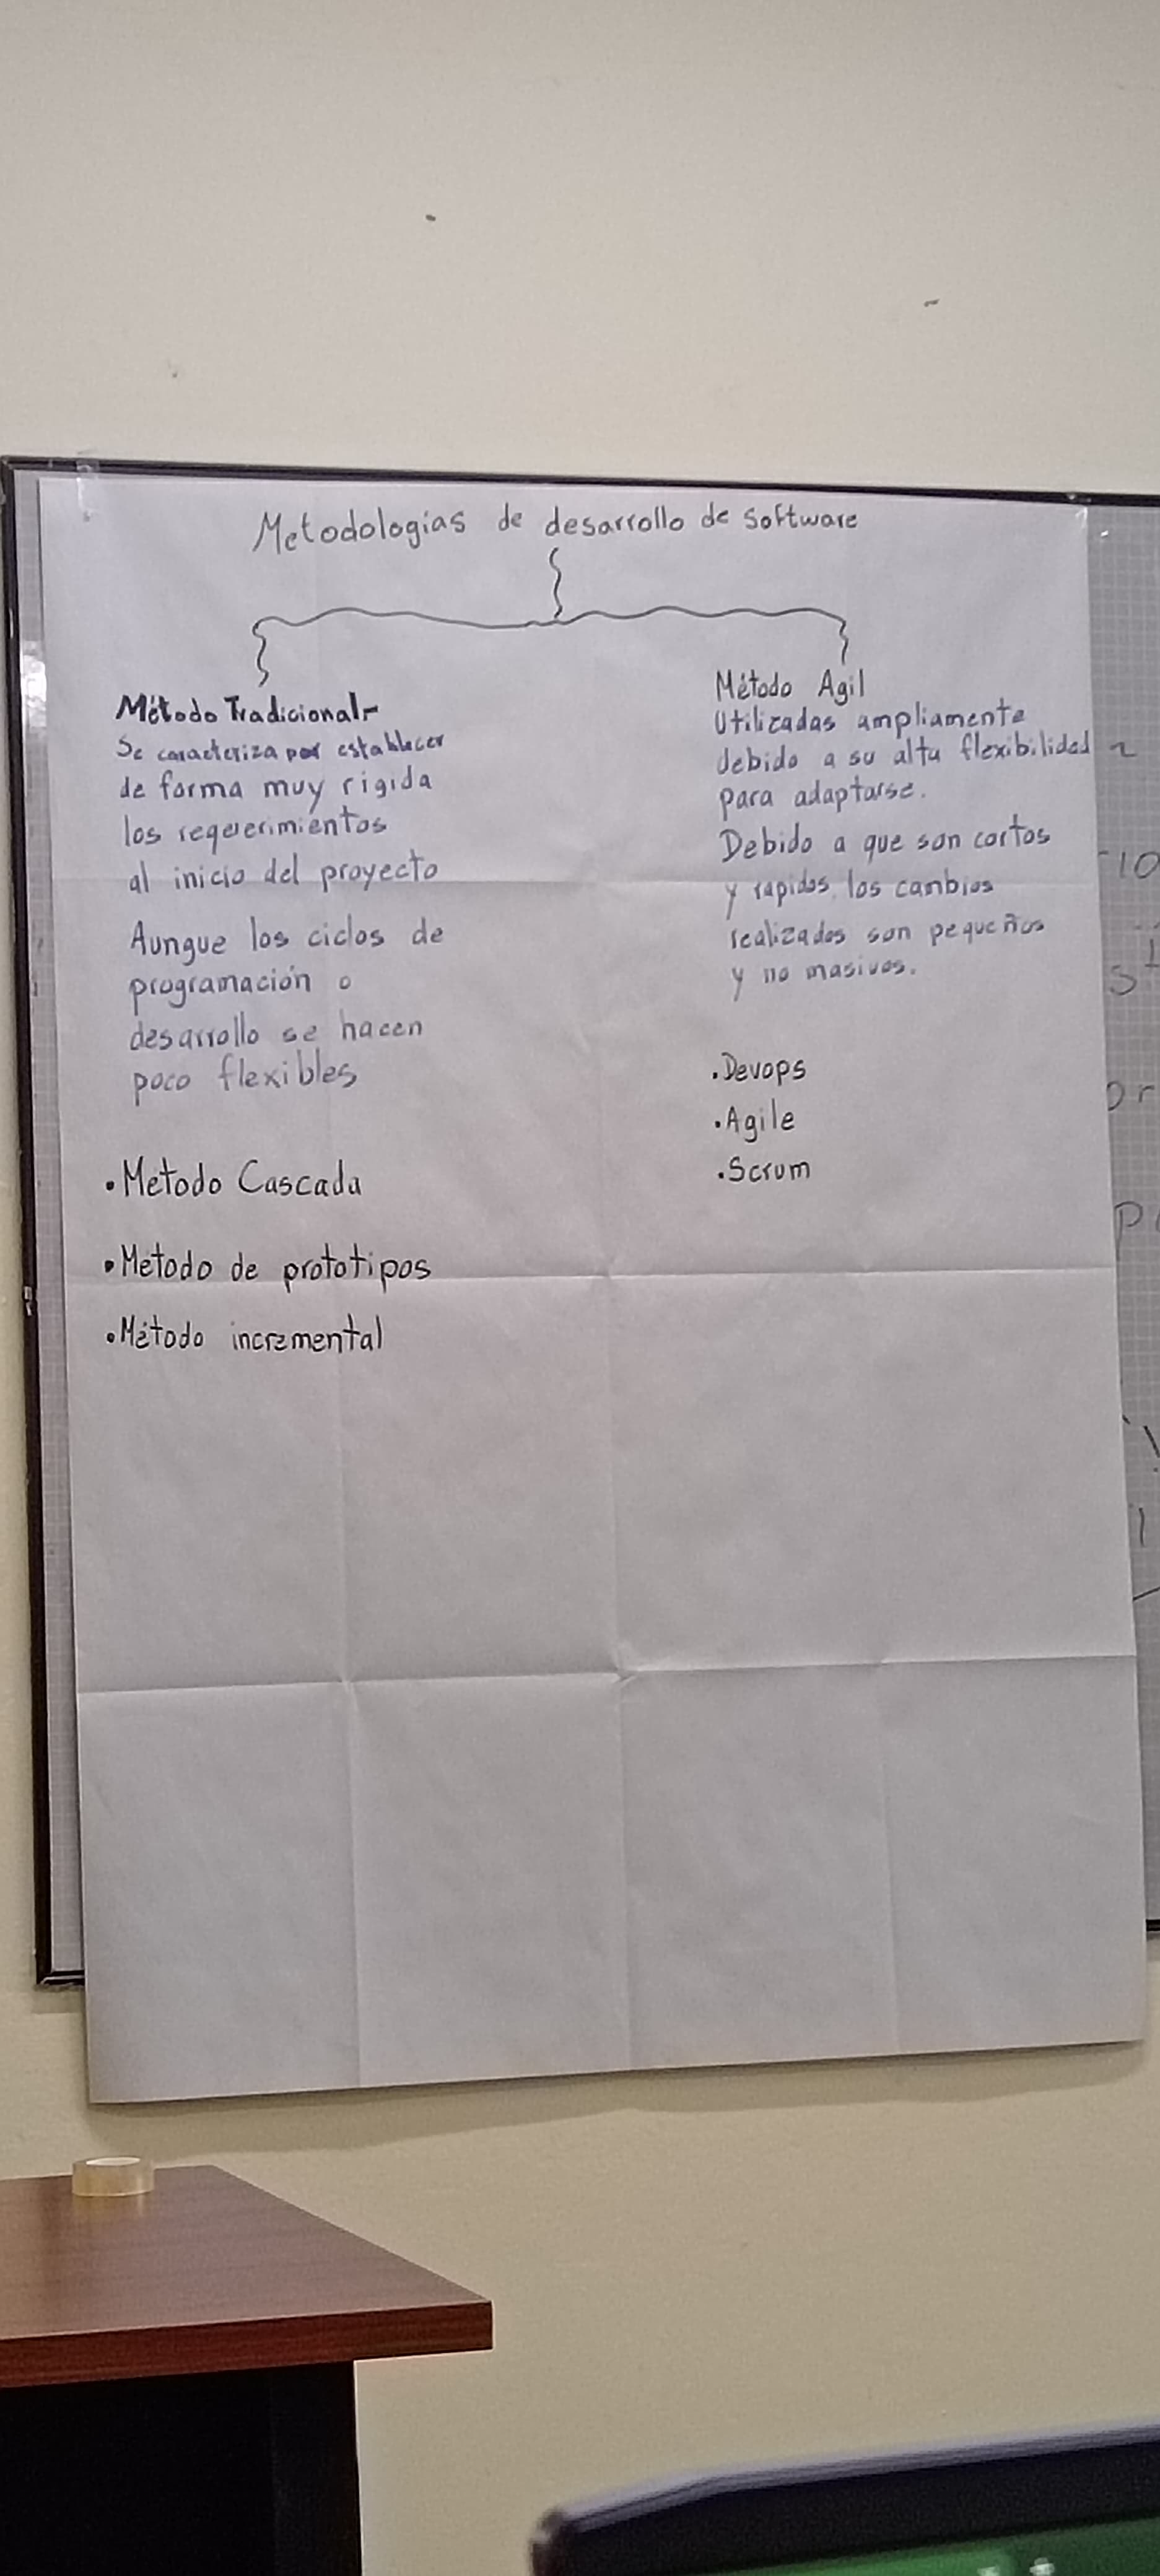 Metodologias de desarrollo de software
Método Tradicional-
Se caracteriza por establecer
de forma muy rigida
los requerimientos
al inicio del proyecto
Aunque los ciclos de
programación o
desarrollo se hacen
poco flexibles
• Metodo Cascada
• Metodo de prototipos
• Método incremental
Método Agil
Utilizadas ampliamente
debido a su alta flexibilidad
para adaptarse.
Debido a que son cortos
y rapidos, los cambios
realizados son pequeños
y no masivos.
• Devops
• Agile
• Scrum